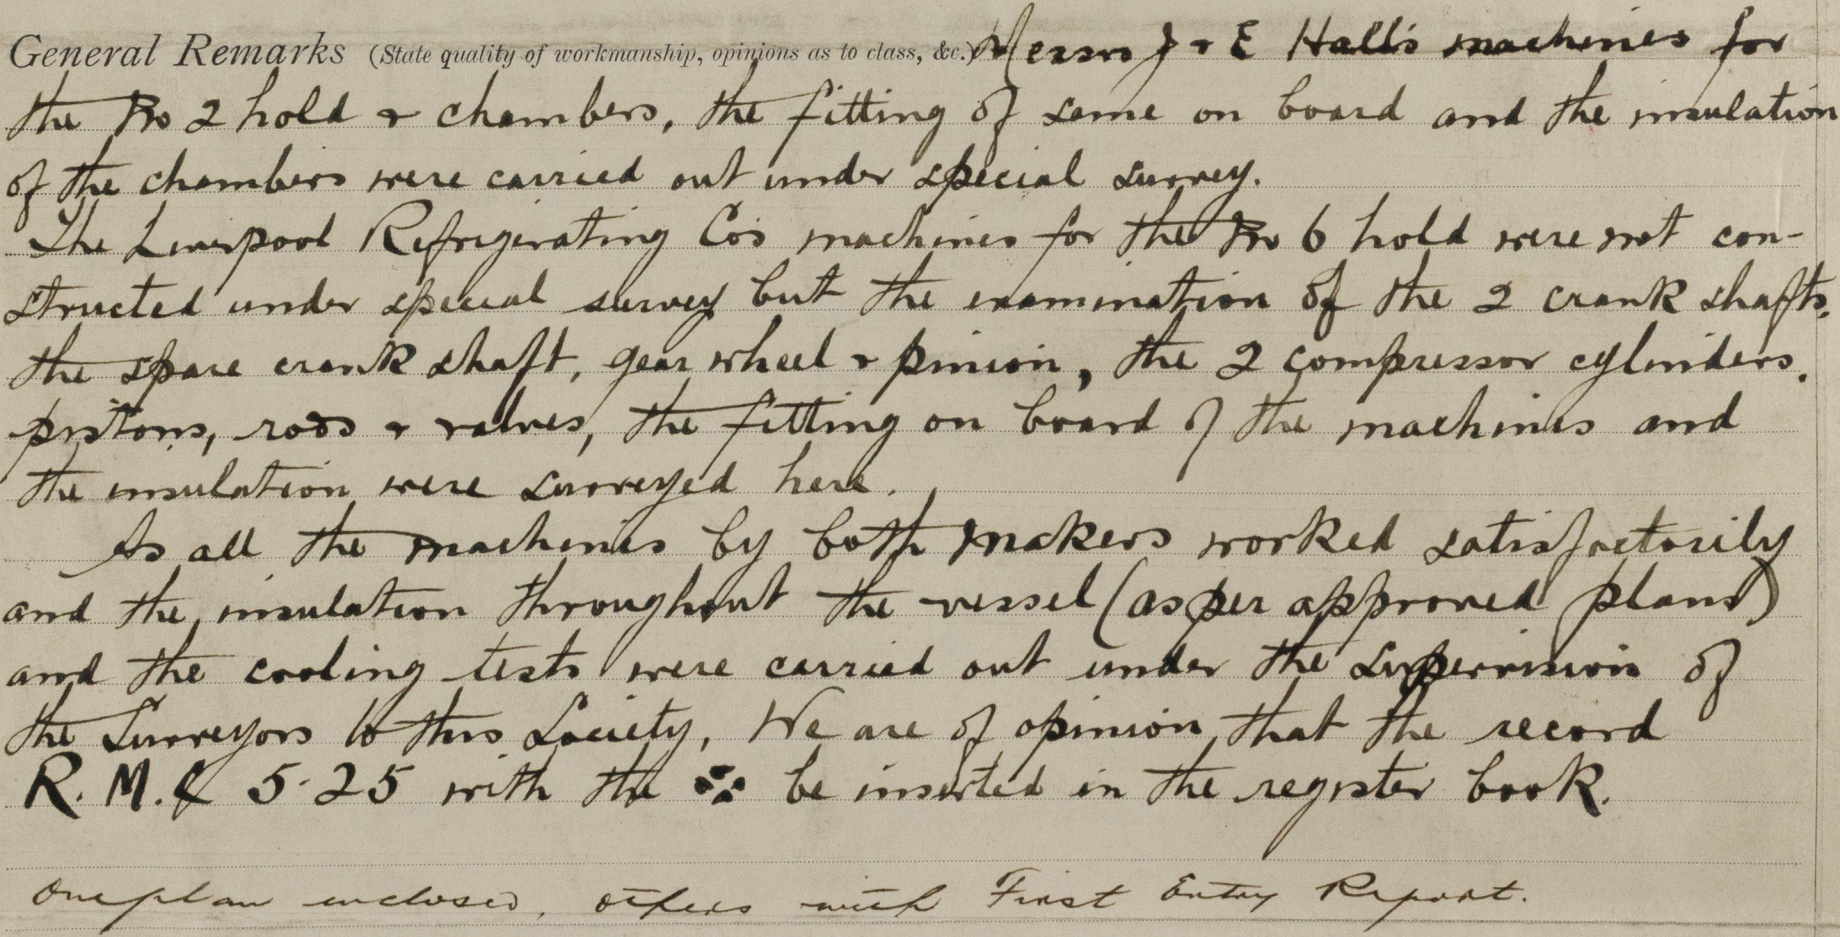 General Remarks (State quality of workmanship, opinions as to class, &c.) Messrs J & E Hall's machines for
the No 2 hold & chambers, the fitting of same on board and the insulation
of the chambers were carried out under special survey.
The Liverpool Refrigerating Co's machines for the No 6 hold were not con-
structed under special survey but the examination of the 2 crank shafts,
the spare crank shaft, gear wheel & pinion, the 2 compressor cylinders,
pistons, rods & valves, the fitting on board of the machines and
the insulation were surveyed here.
As all the machines by both makers worked satisfactorily
and the insulation throughout the vessel (as per approved plans)
and the cooling tests were carried out under the supervision of
the Surveyors to this Society, We are of opinion that the record
R. M. C 5.25 with the be inserted in the register book.
One plan enclosed, others with First Entry Report.